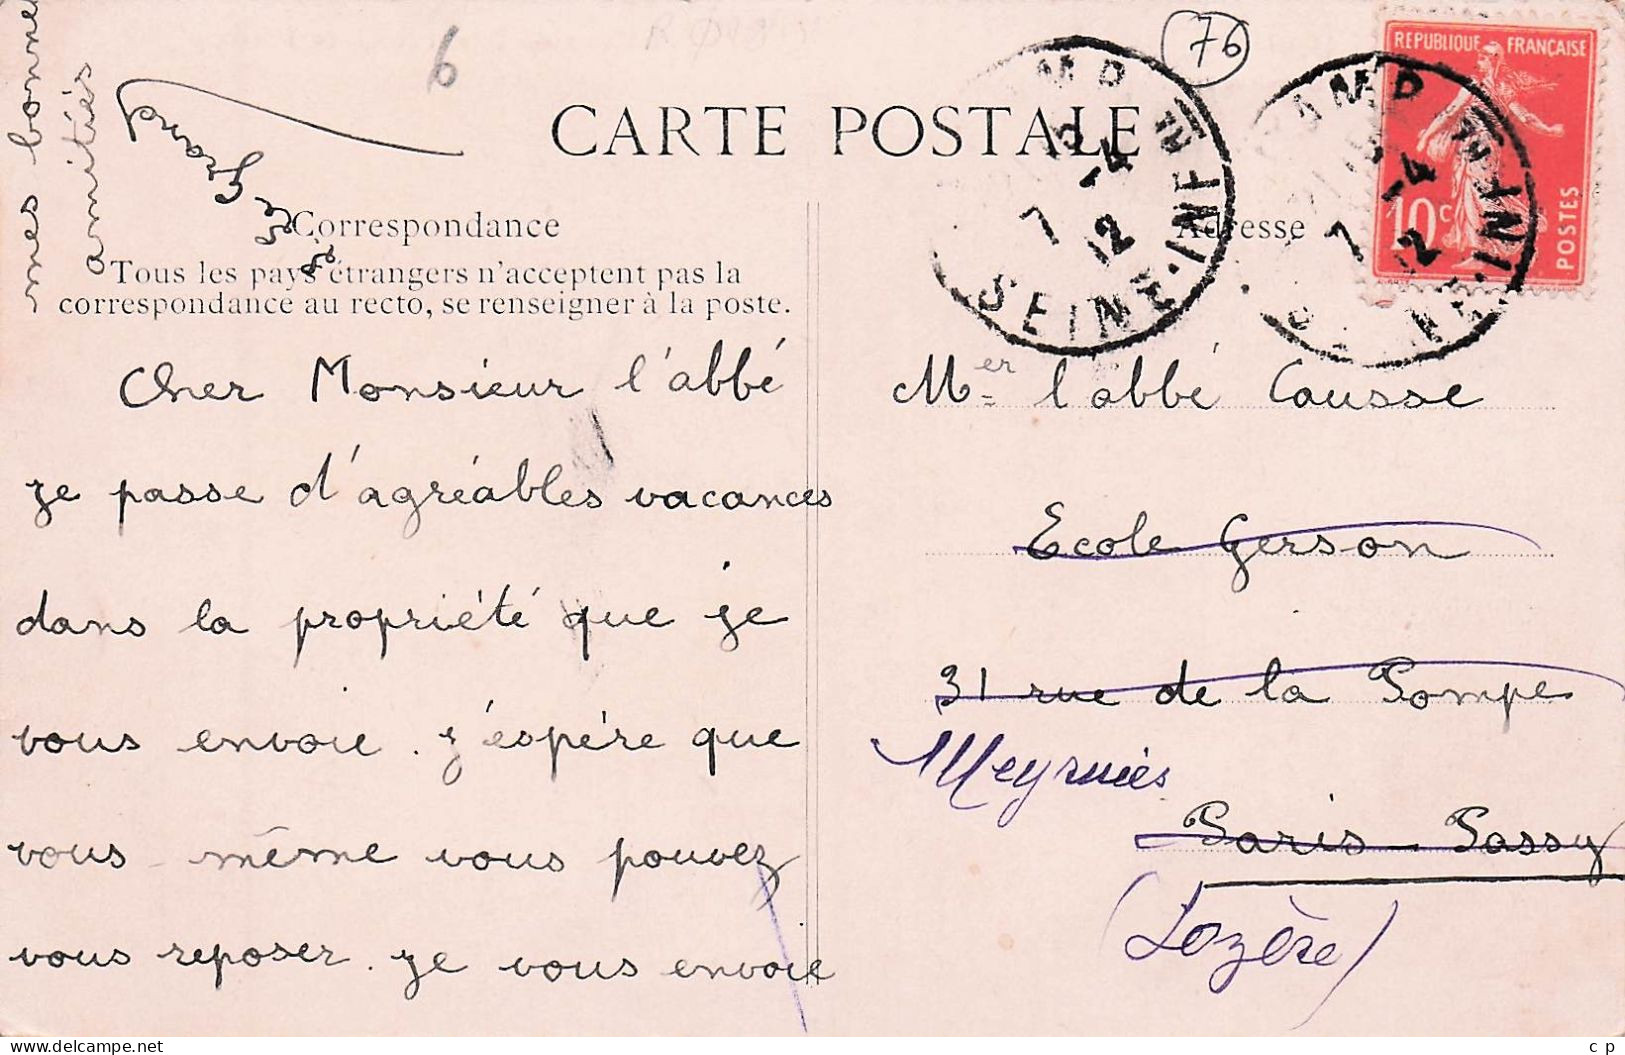 6
76
CARTE POSTALE
Correspondance
Tous les pays étrangers n'acceptent pas la
correspondance au recto, se renseigner à la poste.
Cher Monsieur l'abbé
je passe d'agréables vacances
dans la propriété que je
vous envoie. j'espère que
vous-même vous pouvez
vous reposer. je vous envoie
mes bonnes
amitiés
Adresse
REPUBLIQUE FRANÇAISE
10c
POSTES
7 -4
12
SEINE-INFRE
7 -4
12
SEINE-INFRE
Mer l'abbé Causse
Ecole Gerson
31 rue de la Pompe
Meyrueis
Paris-Passy
(Lozère)
www.delcampe.net
c p